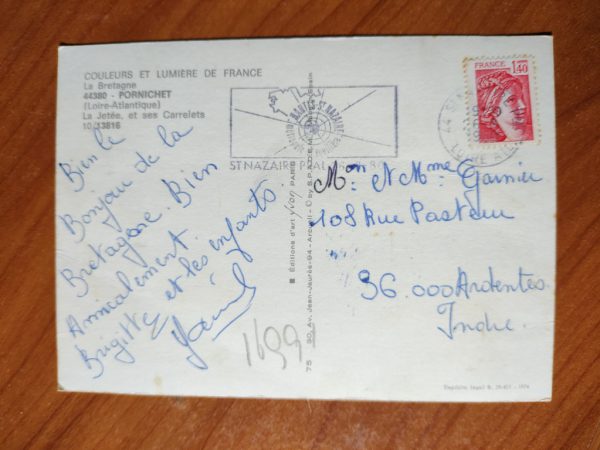 COULEURS ET LUMIÈRE DE FRANCE
La Bretagne
44380 - PORNICHET
(Loire-Atlantique)
La Jetée, et ses Carrelets
10 13816
Bien le
Bonjour de la
Bretagne. Bien
Amicalement.
Brigitte et les enfants.
1699
75 Av. Jean-Jaurès-94-Arcueil
■ Éditions d'art yvon PARIS
NANTES ST NAZAIRE
ST NAZAIRE PPAL
FRANCE
1,40
44 ST
Mon et Mme Garnier
108 Rue Pasteur
36.000 Ardentes
Indre.